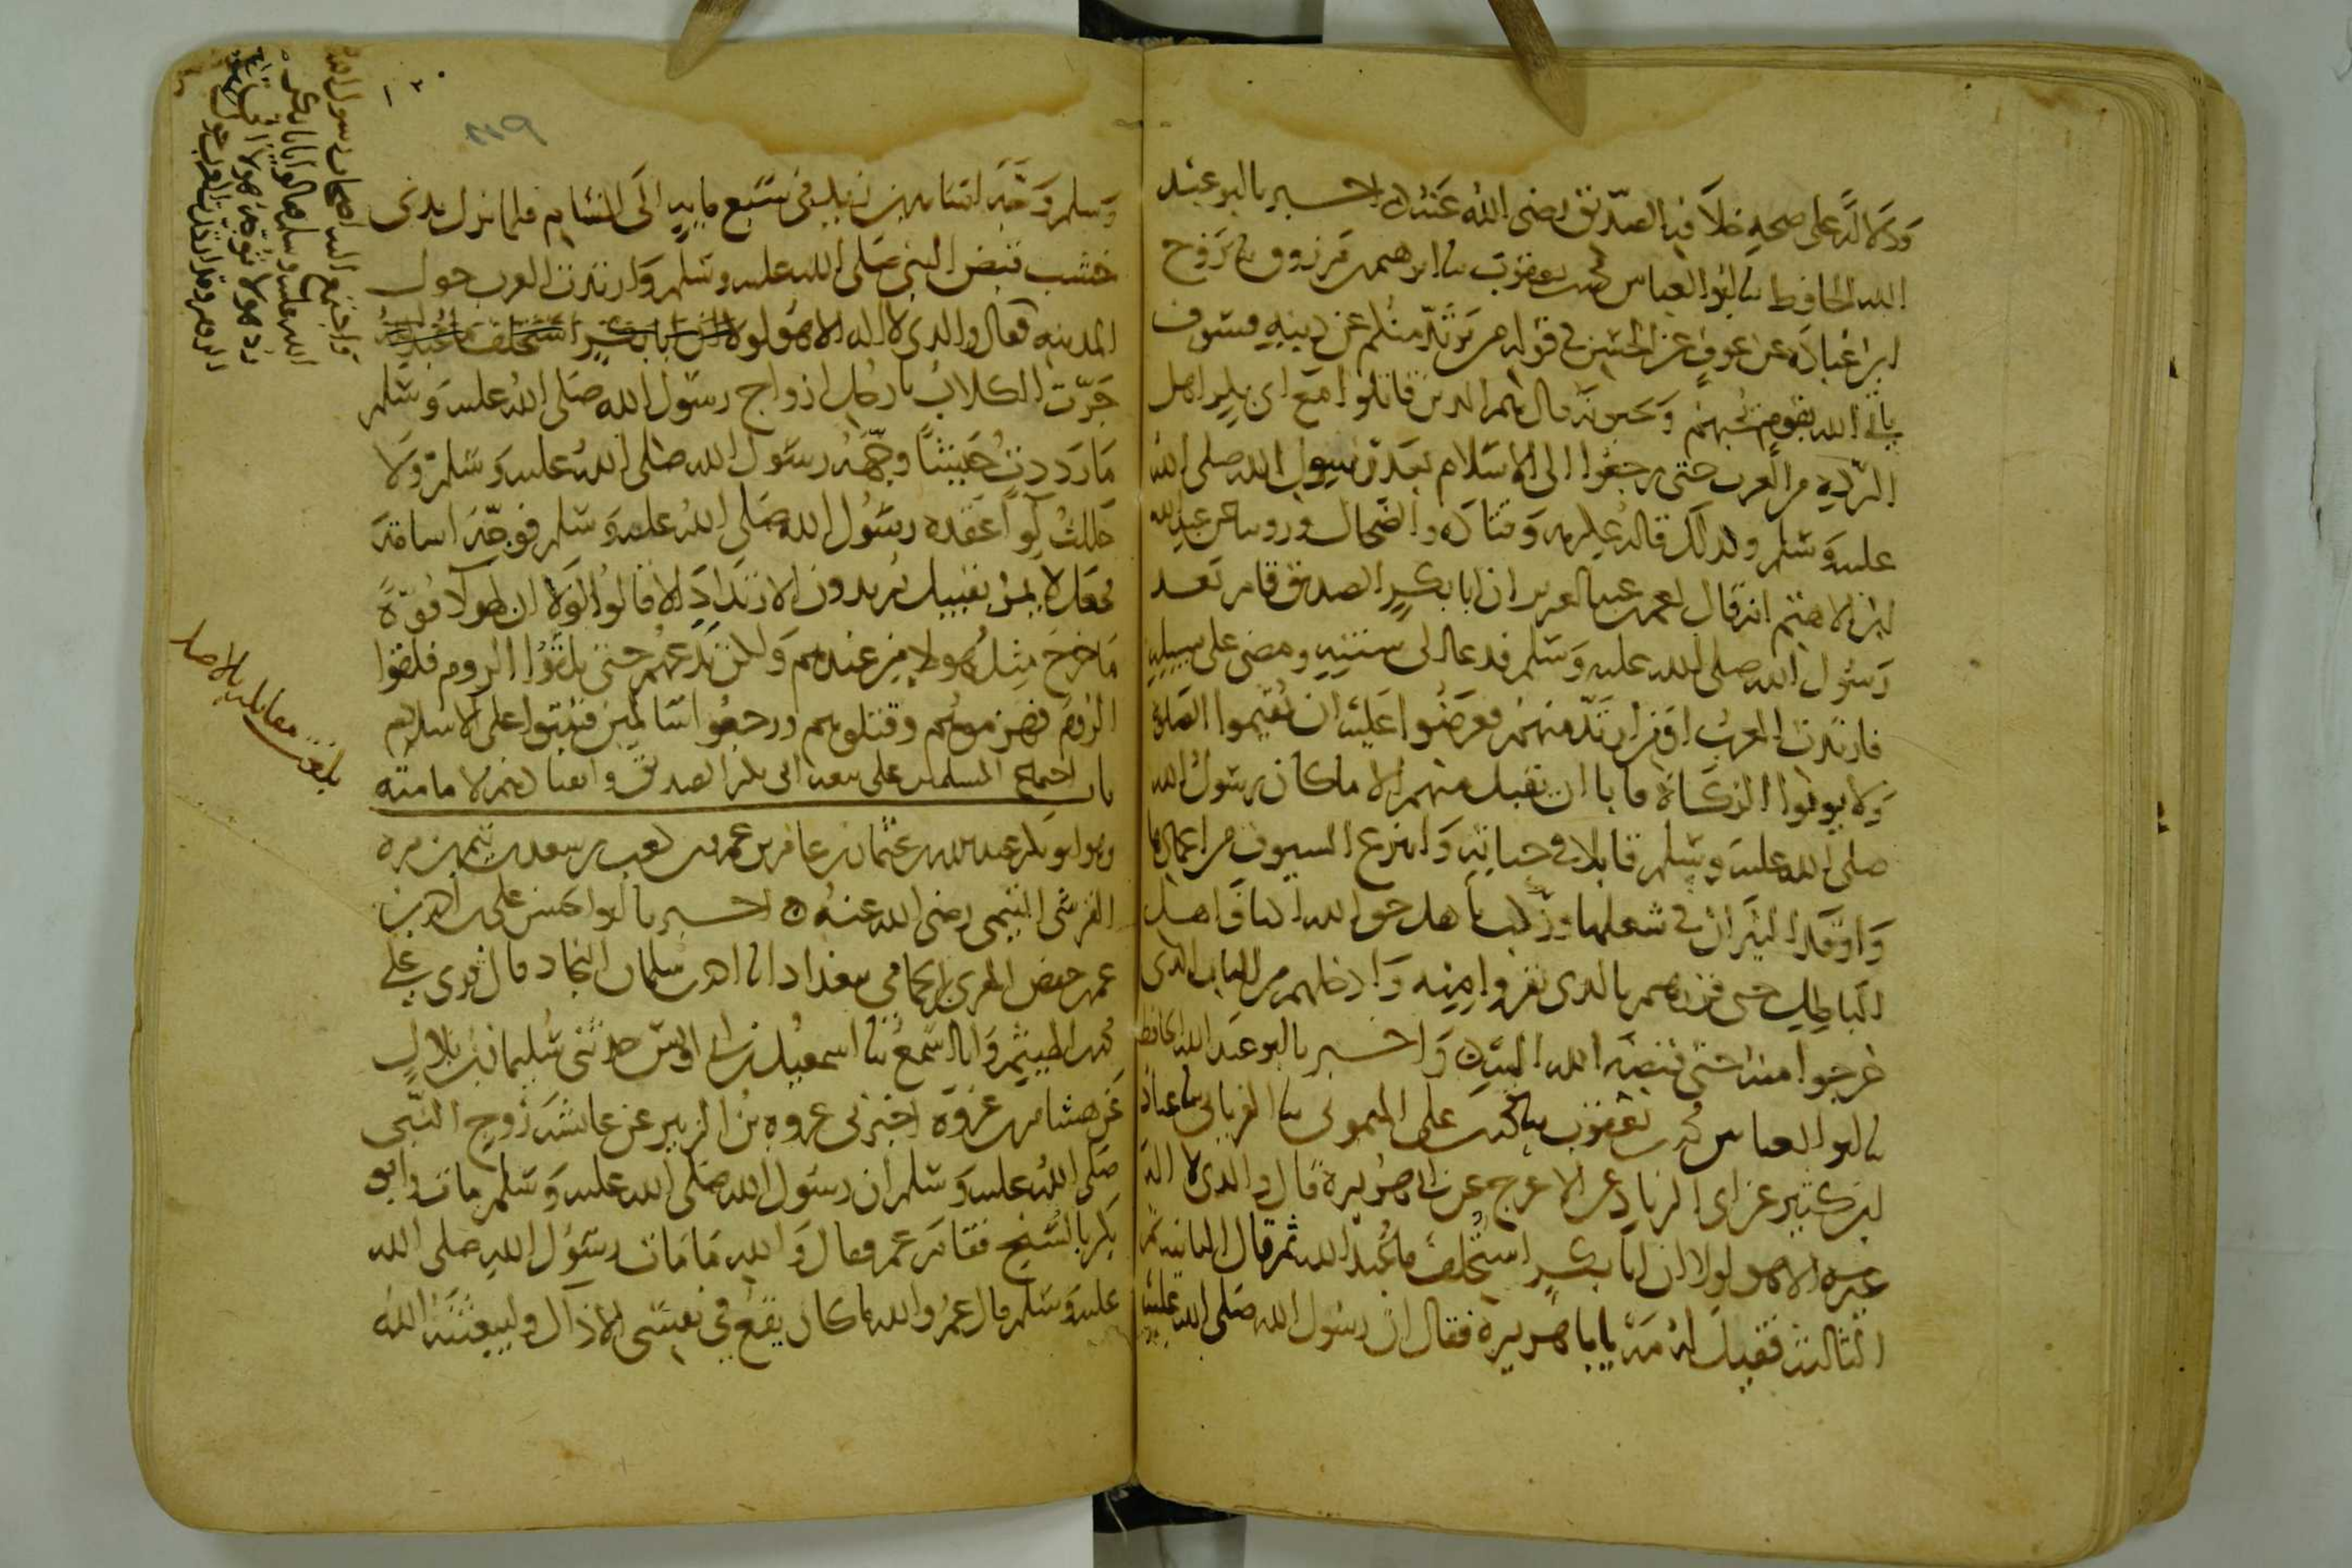 ودلالة على صحة خلافة الصديق رضي الله عنه اخبرنا ابو عبد
الله الحافظ نا ابو العباس محمد بن يعقوب نا ابرهيم بن مرزوق نا روح
ابن عبادة عن عوف عن الحسن في قوله من يرتد منكم عن دينه فسوف
ياتي الله بقوم يحبهم ويحبونه قال هم الذين قاتلوا مع ابي بكر اهل
الردة من العرب حتى رجعوا الى الاسلام بعد رسول الله صلى الله
عليه وسلم وكذلك قاله عكرمة وقتادة والضحاك وروينا عن عبد الله
ابن الاهتم انه قال لعمر بن عبد العزيز ان ابا بكر الصديق قام بعد
رسول الله صلى الله عليه وسلم فدعا الى سنته ومضى على سبيله
فارتدت العرب او من ارتد منهم فعرضوا عليه ان يقيموا الصلوة
ولا يوتوا الزكاة فابا ان يقبل منهم الا ما كان رسول الله
صلى الله عليه وسلم قابلا في حياته وانتزع السيوف من اغمادها
واوقد النيران في شعلها وركب باهل حق الله اكتاف اهل
الباطل حتى قررهم بالذي نفروا منه وادخلهم من الباب الذي
خرجوا منه حتى قبضه الله اليه واخبرنا ابو عبد الله الحافظ
نا ابو العباس محمد بن يعقوب نا محمد بن علي الميموني نا الفريابي نا عباد
ابن كثير عن ابي الزناد عن الاعرج عن ابي هريرة قال والذي لا اله
غيره الا هو لولا ان ابا بكر استخلف ما عبد الله ثم قال الثانية ثم
الثالثة فقيل له مه يا با هريرة فقال ان رسول الله صلى الله عليه
وسلم وجه اسامة بن زيد في سبع ماية الى الشام فلما نزل بذي
خشب قبض النبي صلى الله عليه وسلم وارتدت العرب حول
المدينة فقال والذي لا اله الا هو لولا ان ابا بكر استخلف ما عبد الله
جرت الكلاب بارجل ازواج رسول الله صلى الله عليه وسلم
ما رددت جيشا وجهه رسول الله صلى الله عليه وسلم ولا
حللت لوآ عقده رسول الله صلى الله عليه وسلم فوجه اسامة
فجعل لا يمر بقبيل يريدون الارتداد الا قالوا لولا ان لهولا قوة
ما خرج مثل هولا من عندهم ولكن ندعهم حتى يلقوا الروم فلقوا
الروم فهزموهم وقتلوهم ورجعوا سالمين فثبتوا على الاسلام
باب اجتماع المسلمين على بيعة ابي بكر الصديق وانقيادهم لامامته
وهو ابو بكر عبد الله بن عثمان بن عامر بن عمرو بن كعب بن سعد بن تيم بن مرة
القرشي التيمي رضي الله عنه اخبرنا ابو الحسن علي بن احمد بن
عمر بن حفص المقري ابن الحمامي ببغداد انا احمد بن سلمان النجاد قال قري على
محمد بن الهيثم وانا اسمع نا اسمعيل بن ابي اويس حدثني سليمان بن بلال
عن هشام بن عروة اخبرني عروة بن الزبير عن عائشة زوج النبي
صلى الله عليه وسلم ان رسول الله صلى الله عليه وسلم مات وابو
بكر بالسنح فقام عمر فقال والله ما مات رسول الله صلى الله
عليه وسلم قال عمر والله ما كان يقع في نفسي الا ذاك وليبعثنه الله
واجتمع اليه اصحاب رسول الله
الله عليه وسلم فقالوا يا ابا بكر
رد هولا توجه هولا الى
الروم وقد ارتدت العرب حول
بلغت مقابلة بالاصل